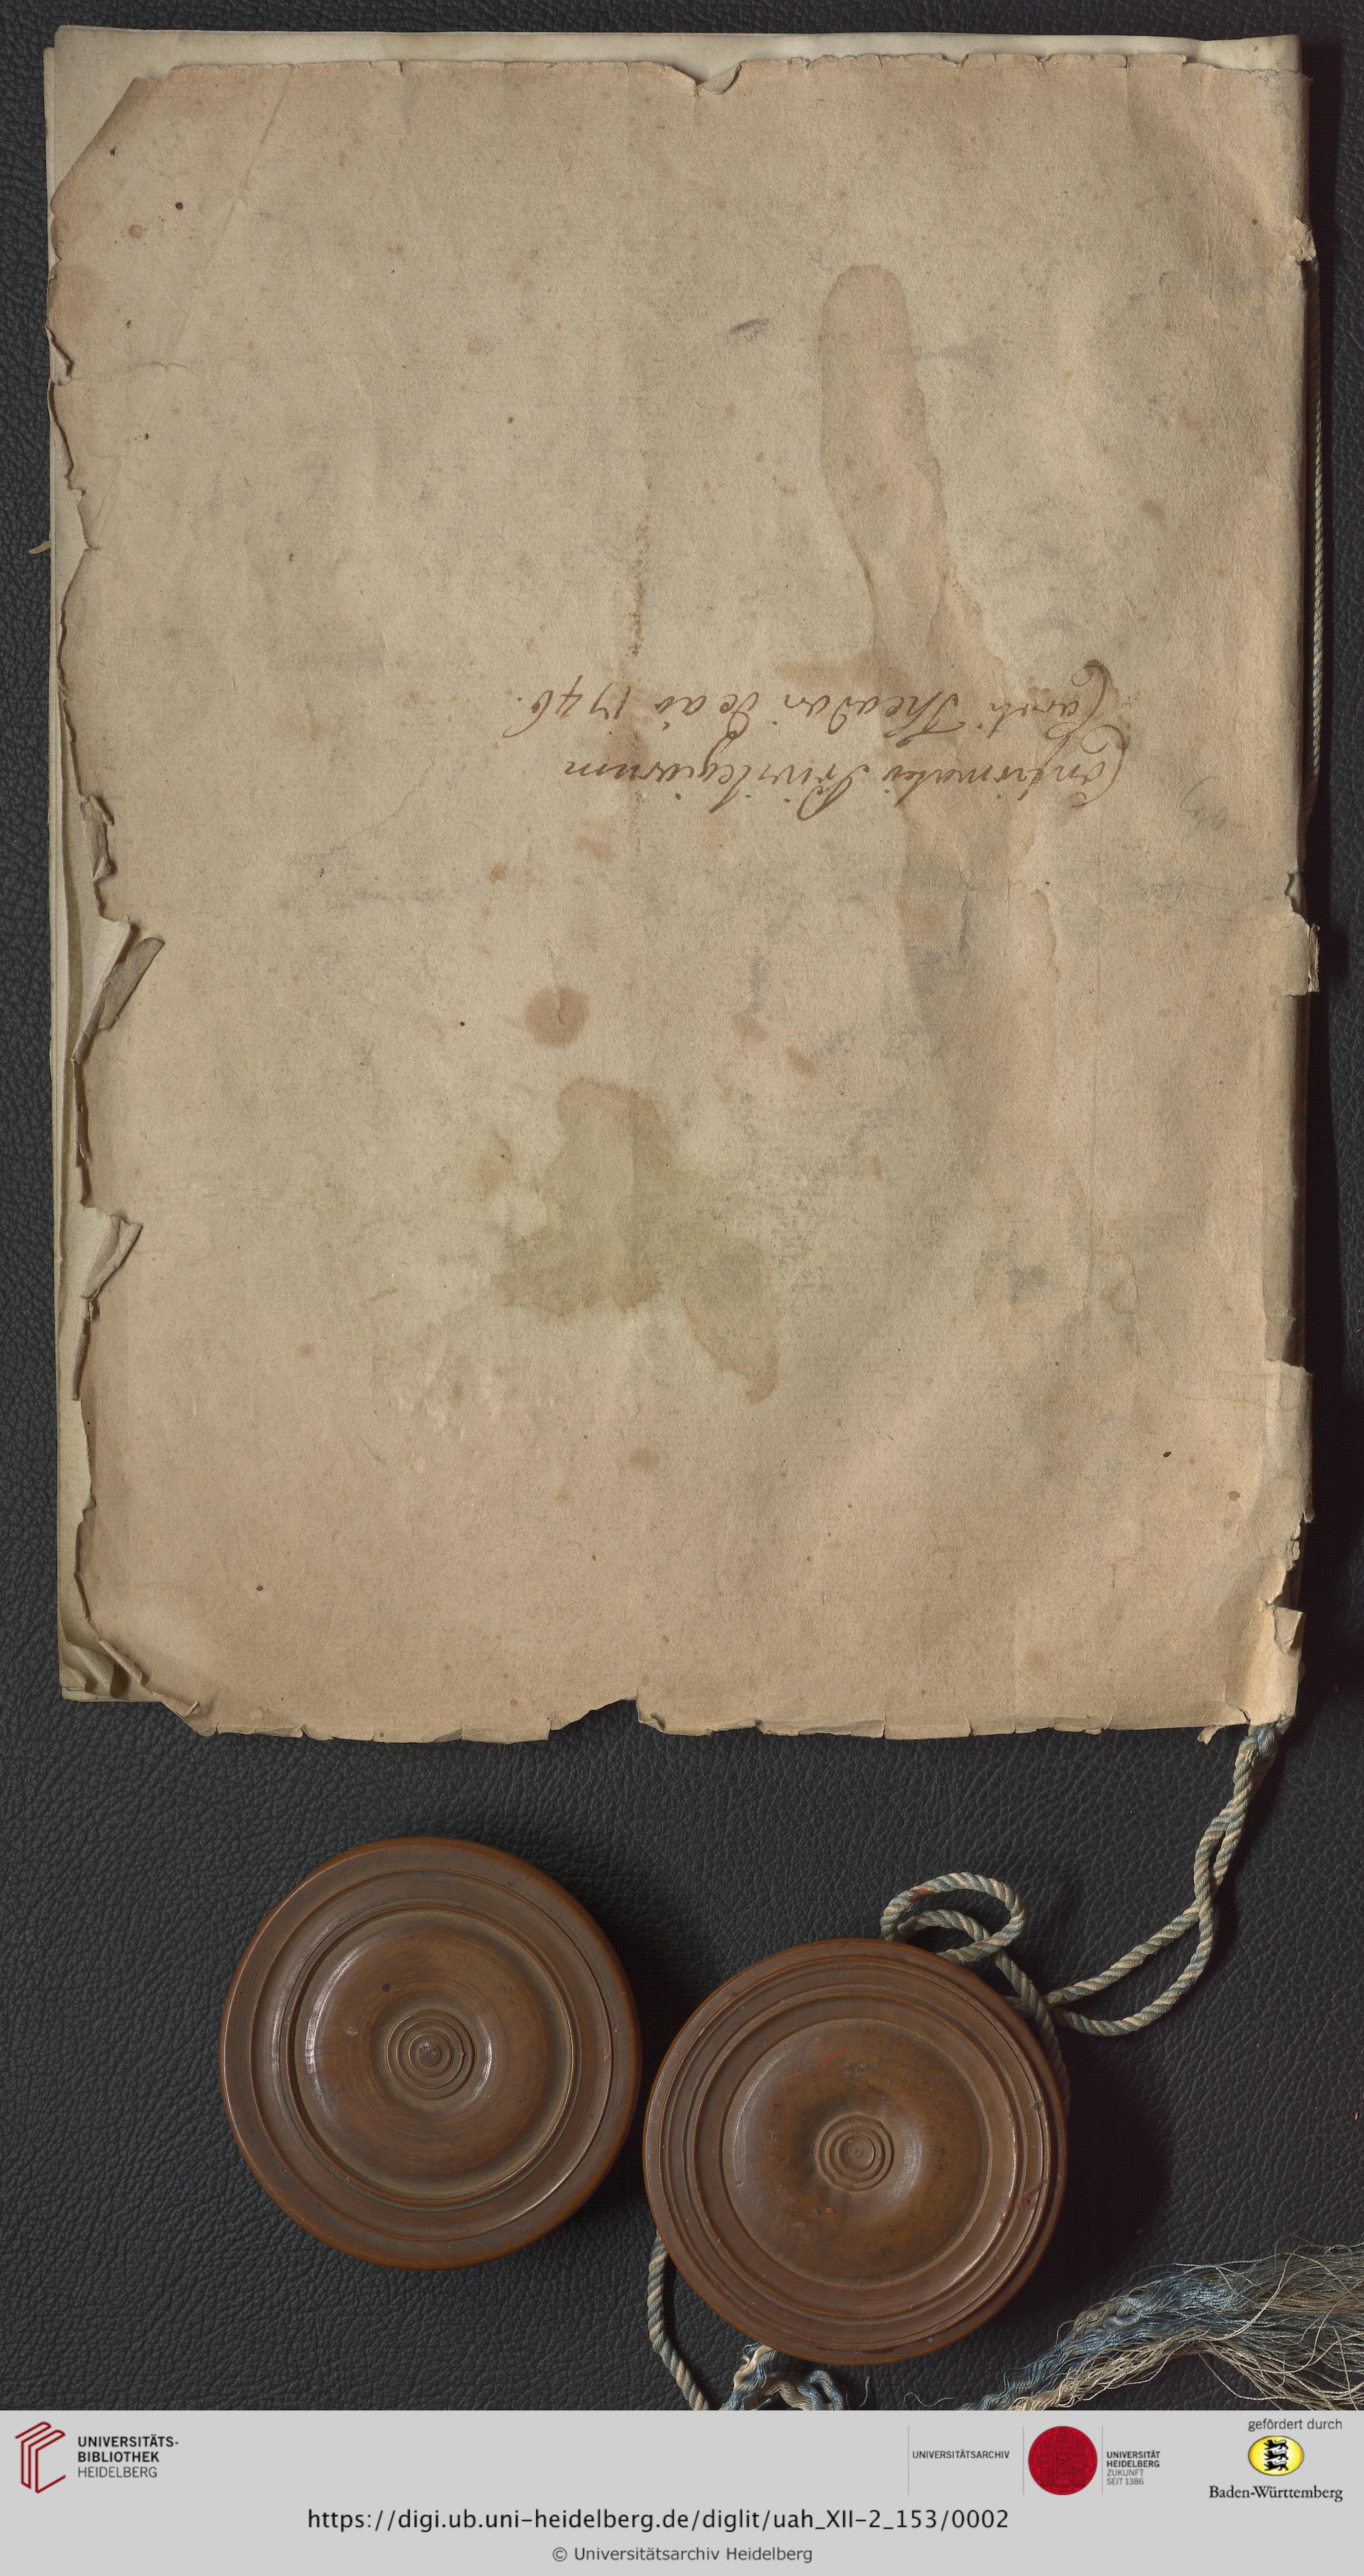 Confirmatio Privilegiorum
Caroli Theodori de aō 1746.
UNIVERSITÄTS-
BIBLIOTHEK
HEIDELBERG
UNIVERSITÄTSARCHIV
UNIVERSITÄT
HEIDELBERG
ZUKUNFT
SEIT 1386
gefördert durch
Baden-Württemberg
https://digi.ub.uni-heidelberg.de/diglit/uah_XII-2_153/0002
© Universitätsarchiv Heidelberg